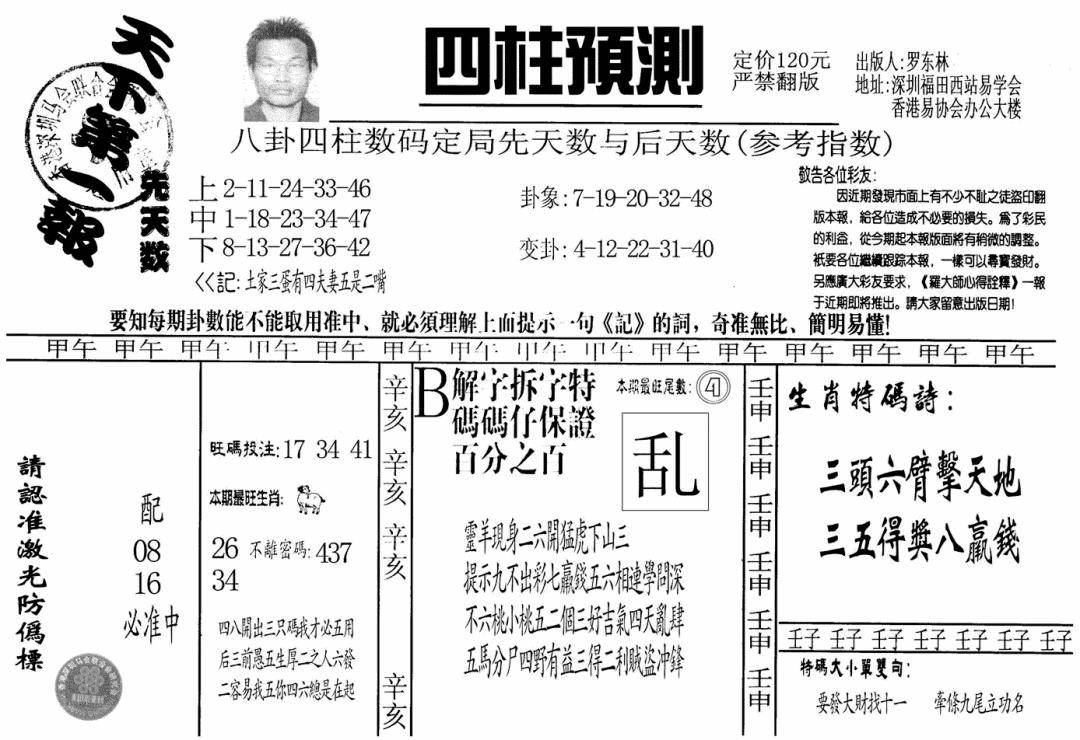 天下第一報
四柱預測
定价120元
严禁翻版
出版人:罗东林
地址:深圳福田西站易学会
香港易协会办公大楼
八卦四柱数码定局先天数与后天数(参考指数)
先天数
上2-11-24-33-46
中1-18-23-34-47
下8-13-27-36-42
卦象:7-19-20-32-48
变卦:4-12-22-31-40
<<記:土家三蛋有四夫妻五是二嘴
敬告各位彩友:
因近期發現市面上有不少不耻之徒盜印翻
版本報,給各位造成不必要的損失。為了彩民
的利益,從今期起本報版面將有稍微的調整。
衹要各位繼續跟踪本報,一樣可以尋寶發財。
另應廣大彩友要求,《羅大師心得詮釋》一報
于近期即將推出。請大家留意出版日期!
要知每期卦數能不能取用准中、就必須理解上面提示一句《記》的詞,奇准無比、簡明易懂!
甲午 甲午 甲午 甲午 甲午 甲午 甲午 甲午 甲午 甲午 甲午 甲午 甲午 甲午 甲午
請認准激光防僞標
配
08
16
必准中
旺碼投注:17 34 41
本期最旺生肖:
26 不離密碼:437
34
四八開出三只碼我才必五用
后三前愚五生厚二之人六發
二容易我五你四六總是在起
辛亥
辛亥
辛亥
辛亥
B解字拆字特
碼碼仔保證
百分之百
本期最旺尾數:④①
乱
靈羊現身二六開猛虎下山三
提示九不出彩七贏錢五六相連學問深
不六桃小桃五二個三好吉氣四天亂肆
五馬分尸四野有益三得二利賊盜冲鋒
壬申
壬申
壬申
壬申
壬申
壬申
生肖特碼詩:
三頭六臂擊天地
三五得獎八贏錢
壬子 壬子 壬子 壬子 壬子 壬子 壬子
特碼大小單雙句:
要發大財找十一 牽條九尾立功名